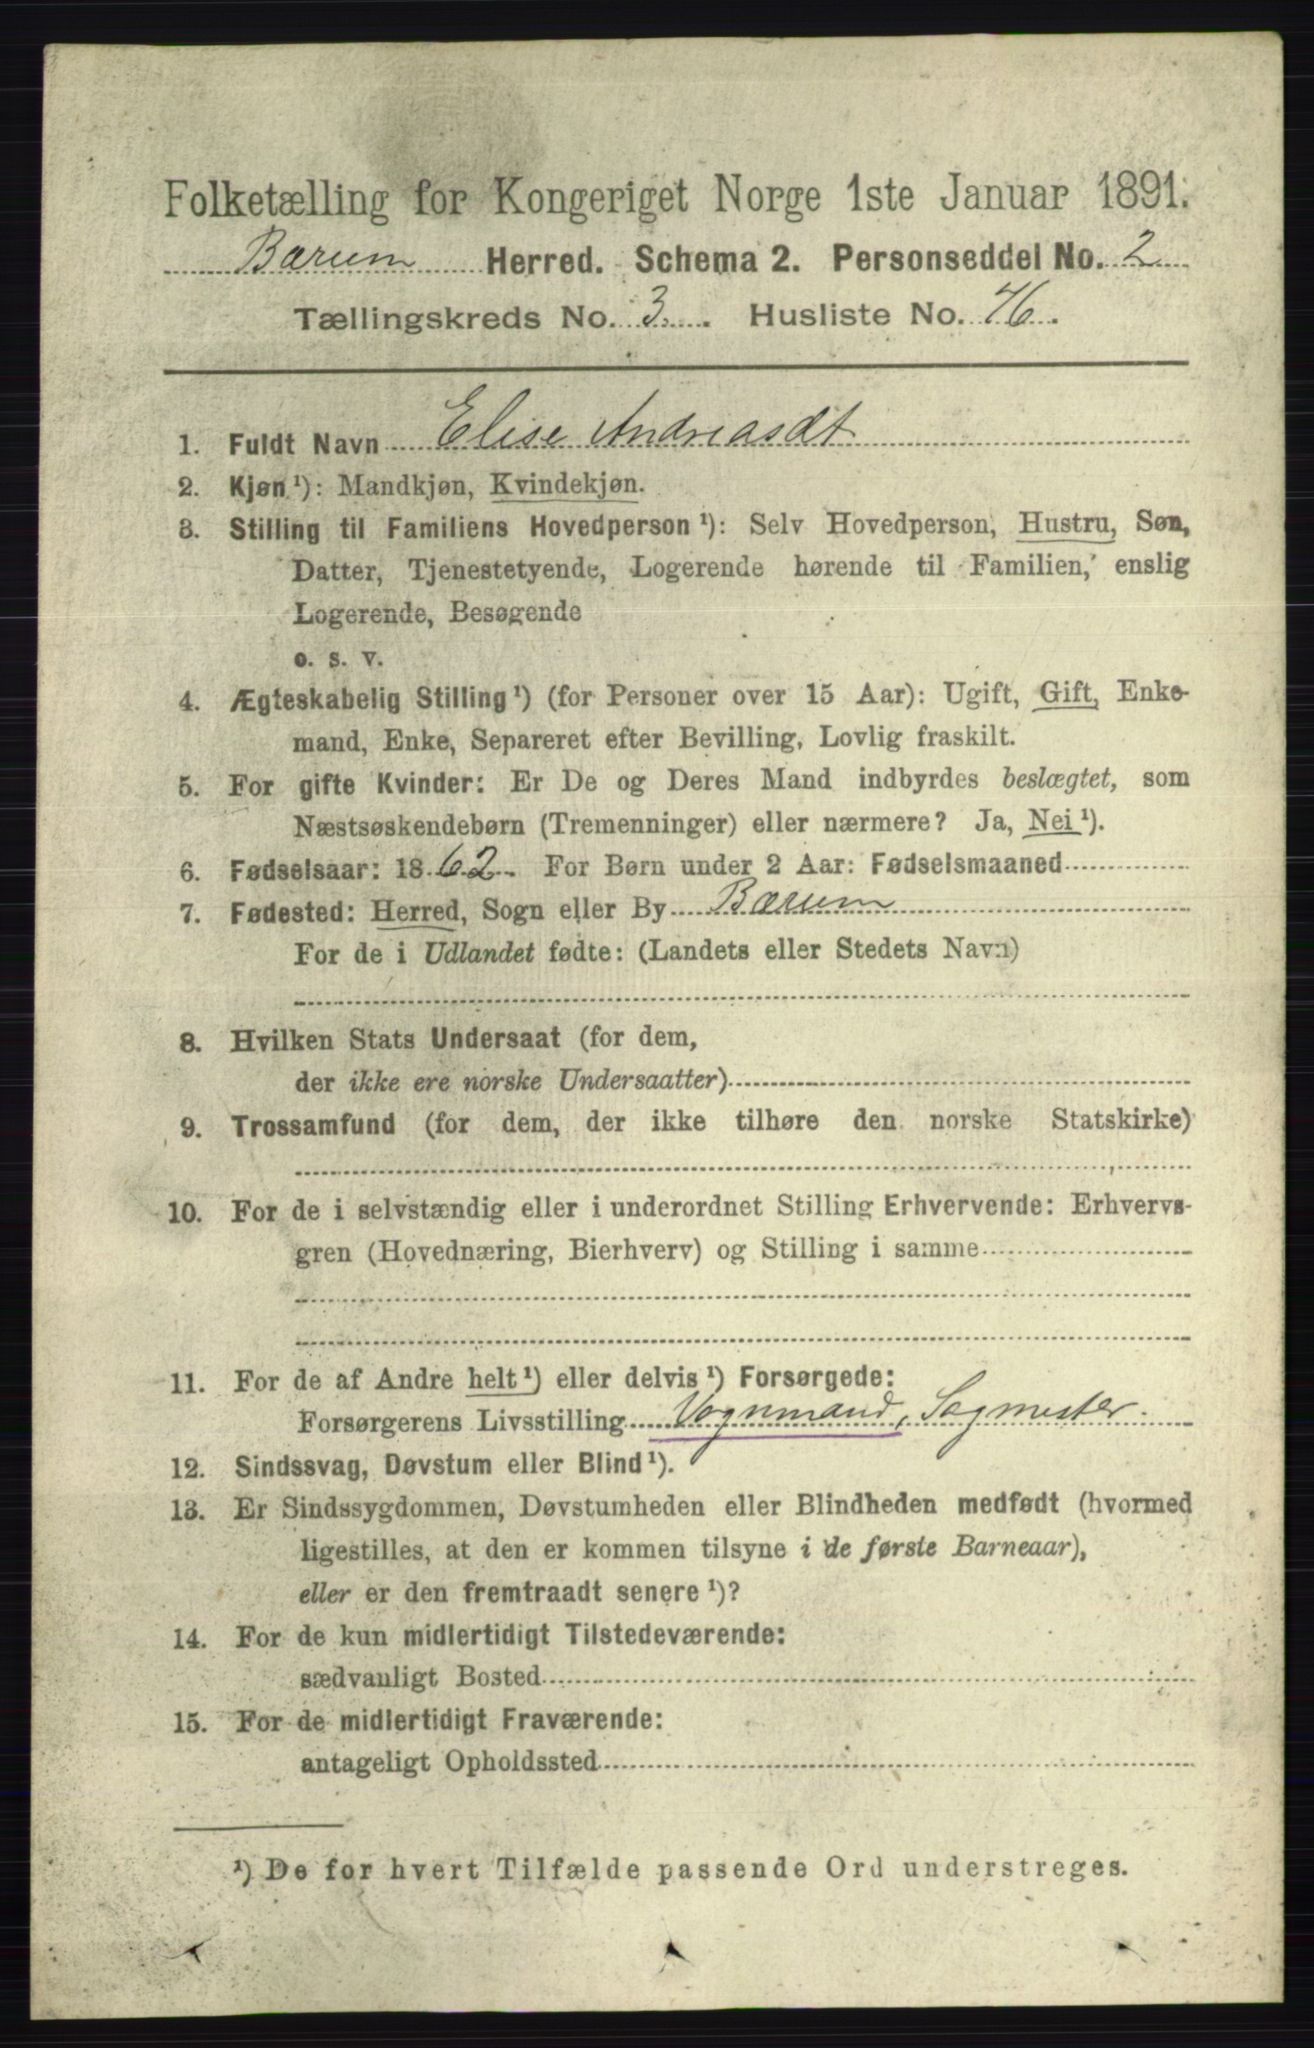 Folketælling for Kongeriget Norge 1ste Januar 1891.
Bærum Herred. Schema 2. Personseddel No. 2
Tællingskreds No. 3. Husliste No. 76.
1. Fuldt Navn Elise Andreasdt
2. Kjøn ¹): Mandkjøn, Kvindekjøn.
3. Stilling til Familiens Hovedperson ¹): Selv Hovedperson, Hustru, Søn,
Datter, Tjenestetyende, Logerende hørende til Familien, enslig
Logerende, Besøgende
o. s. v.
4. Ægteskabelig Stilling ¹) (for Personer over 15 Aar): Ugift, Gift, Enke-
mand, Enke, Separeret efter Bevilling, Lovlig fraskilt.
5. For gifte Kvinder: Er De og Deres Mand indbyrdes beslægtet, som
Næstsøskendebørn (Tremenninger) eller nærmere? Ja, Nei ¹).
6. Fødselsaar: 1862. For Børn under 2 Aar: Fødselsmaaned
7. Fødested: Herred, Sogn eller By Bærum
For de i Udlandet fødte: (Landets eller Stedets Navn)
8. Hvilken Stats Undersaat (for dem,
der ikke ere norske Undersaatter)
9. Trossamfund (for dem, der ikke tilhøre den norske Statskirke)
10. For de i selvstændig eller i underordnet Stilling Erhvervende: Erhvervs-
gren (Hovednæring, Bierhverv) og Stilling i samme
11. For de af Andre helt ¹) eller delvis ¹) Forsørgede:
Forsørgerens Livsstilling Vognmand, Sagmester.
12. Sindssvag, Døvstum eller Blind ¹).
13. Er Sindssygdommen, Døvstumheden eller Blindheden medfødt (hvormed
ligestilles, at den er kommen tilsyne i de første Barneaar),
eller er den fremtraadt senere ¹)?
14. For de kun midlertidigt Tilstedeværende:
sædvanligt Bosted
15. For de midlertidigt Fraværende:
antageligt Opholdssted
¹) De for hvert Tilfælde passende Ord understreges.